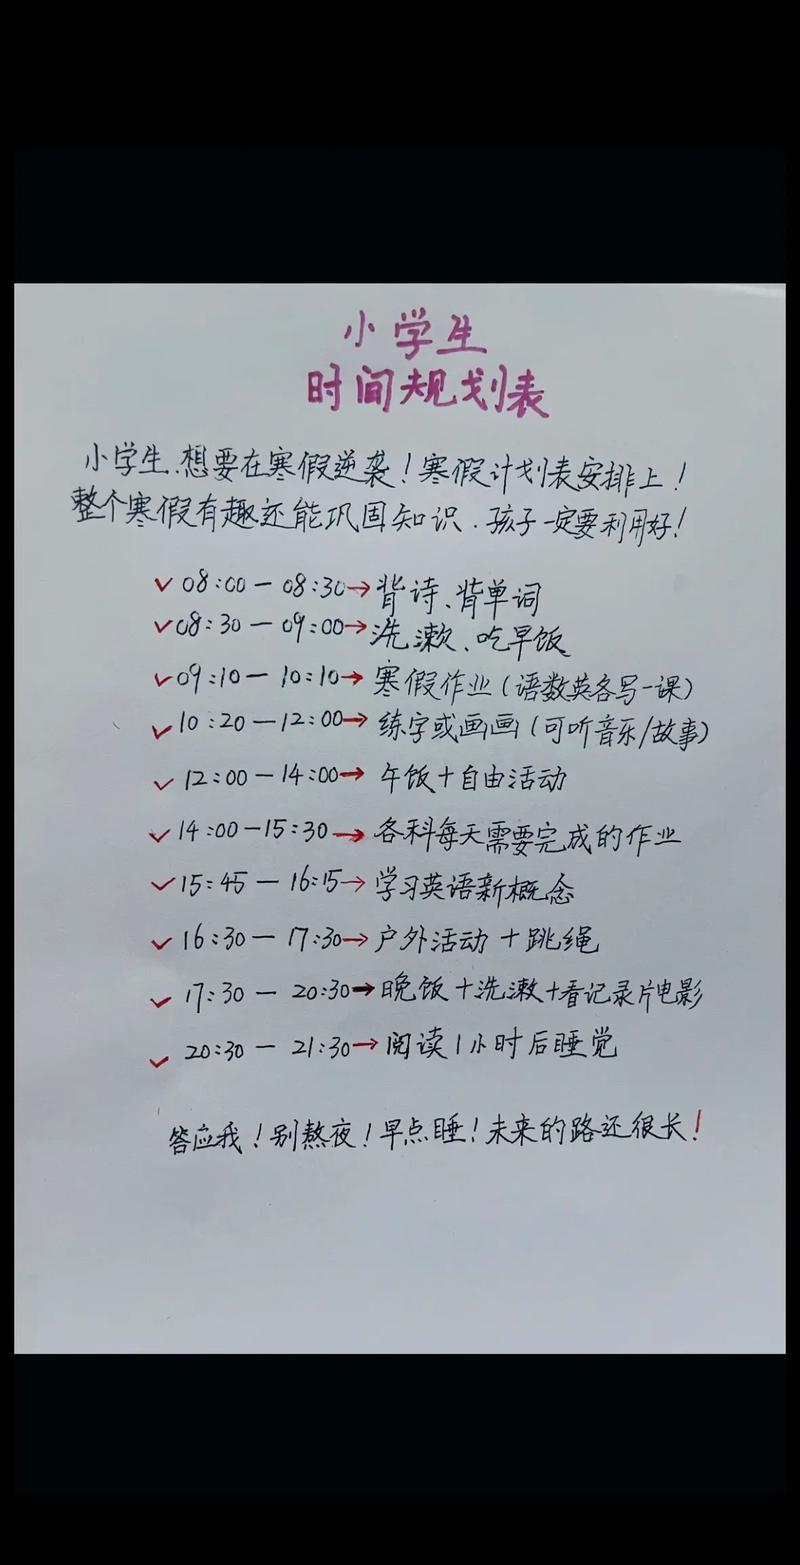 小学生
时间规划表
小学生.想要在寒假逆袭！寒假计划表安排上！
整个寒假有趣还能巩固知识.孩子一定要利用好！
✓08:00—08:30→背诗、背单词
✓08:30—09:00→洗漱、吃早饭
✓09:10—10:10→寒假作业(语数英各写一课)
✓10:20—12:00→练字或画画(可听音乐/故事)
✓12:00—14:00→午饭+自由活动
✓14:00—15:30→各科每天需要完成的作业
✓15:45—16:15→学习英语新概念
✓16:30—17:30→户外活动+跳绳
✓17:30—20:30→晚饭+洗漱+看记录片电影
✓20:30—21:30→阅读1小时后睡觉
答应我！别熬夜！早点睡！未来的路还很长！